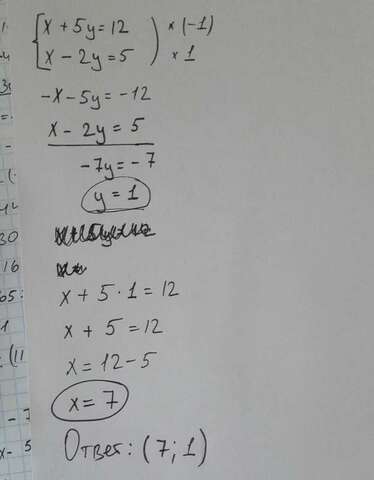 x + 5y = 12 × (-1)
x - 2y = 5 × 1
-x - 5y = -12
x - 2y = 5
-7y = -7
y = 1
x + 5 · 1 = 12
x + 5 = 12
x = 12 - 5
x = 7
Ответ: (7; 1)